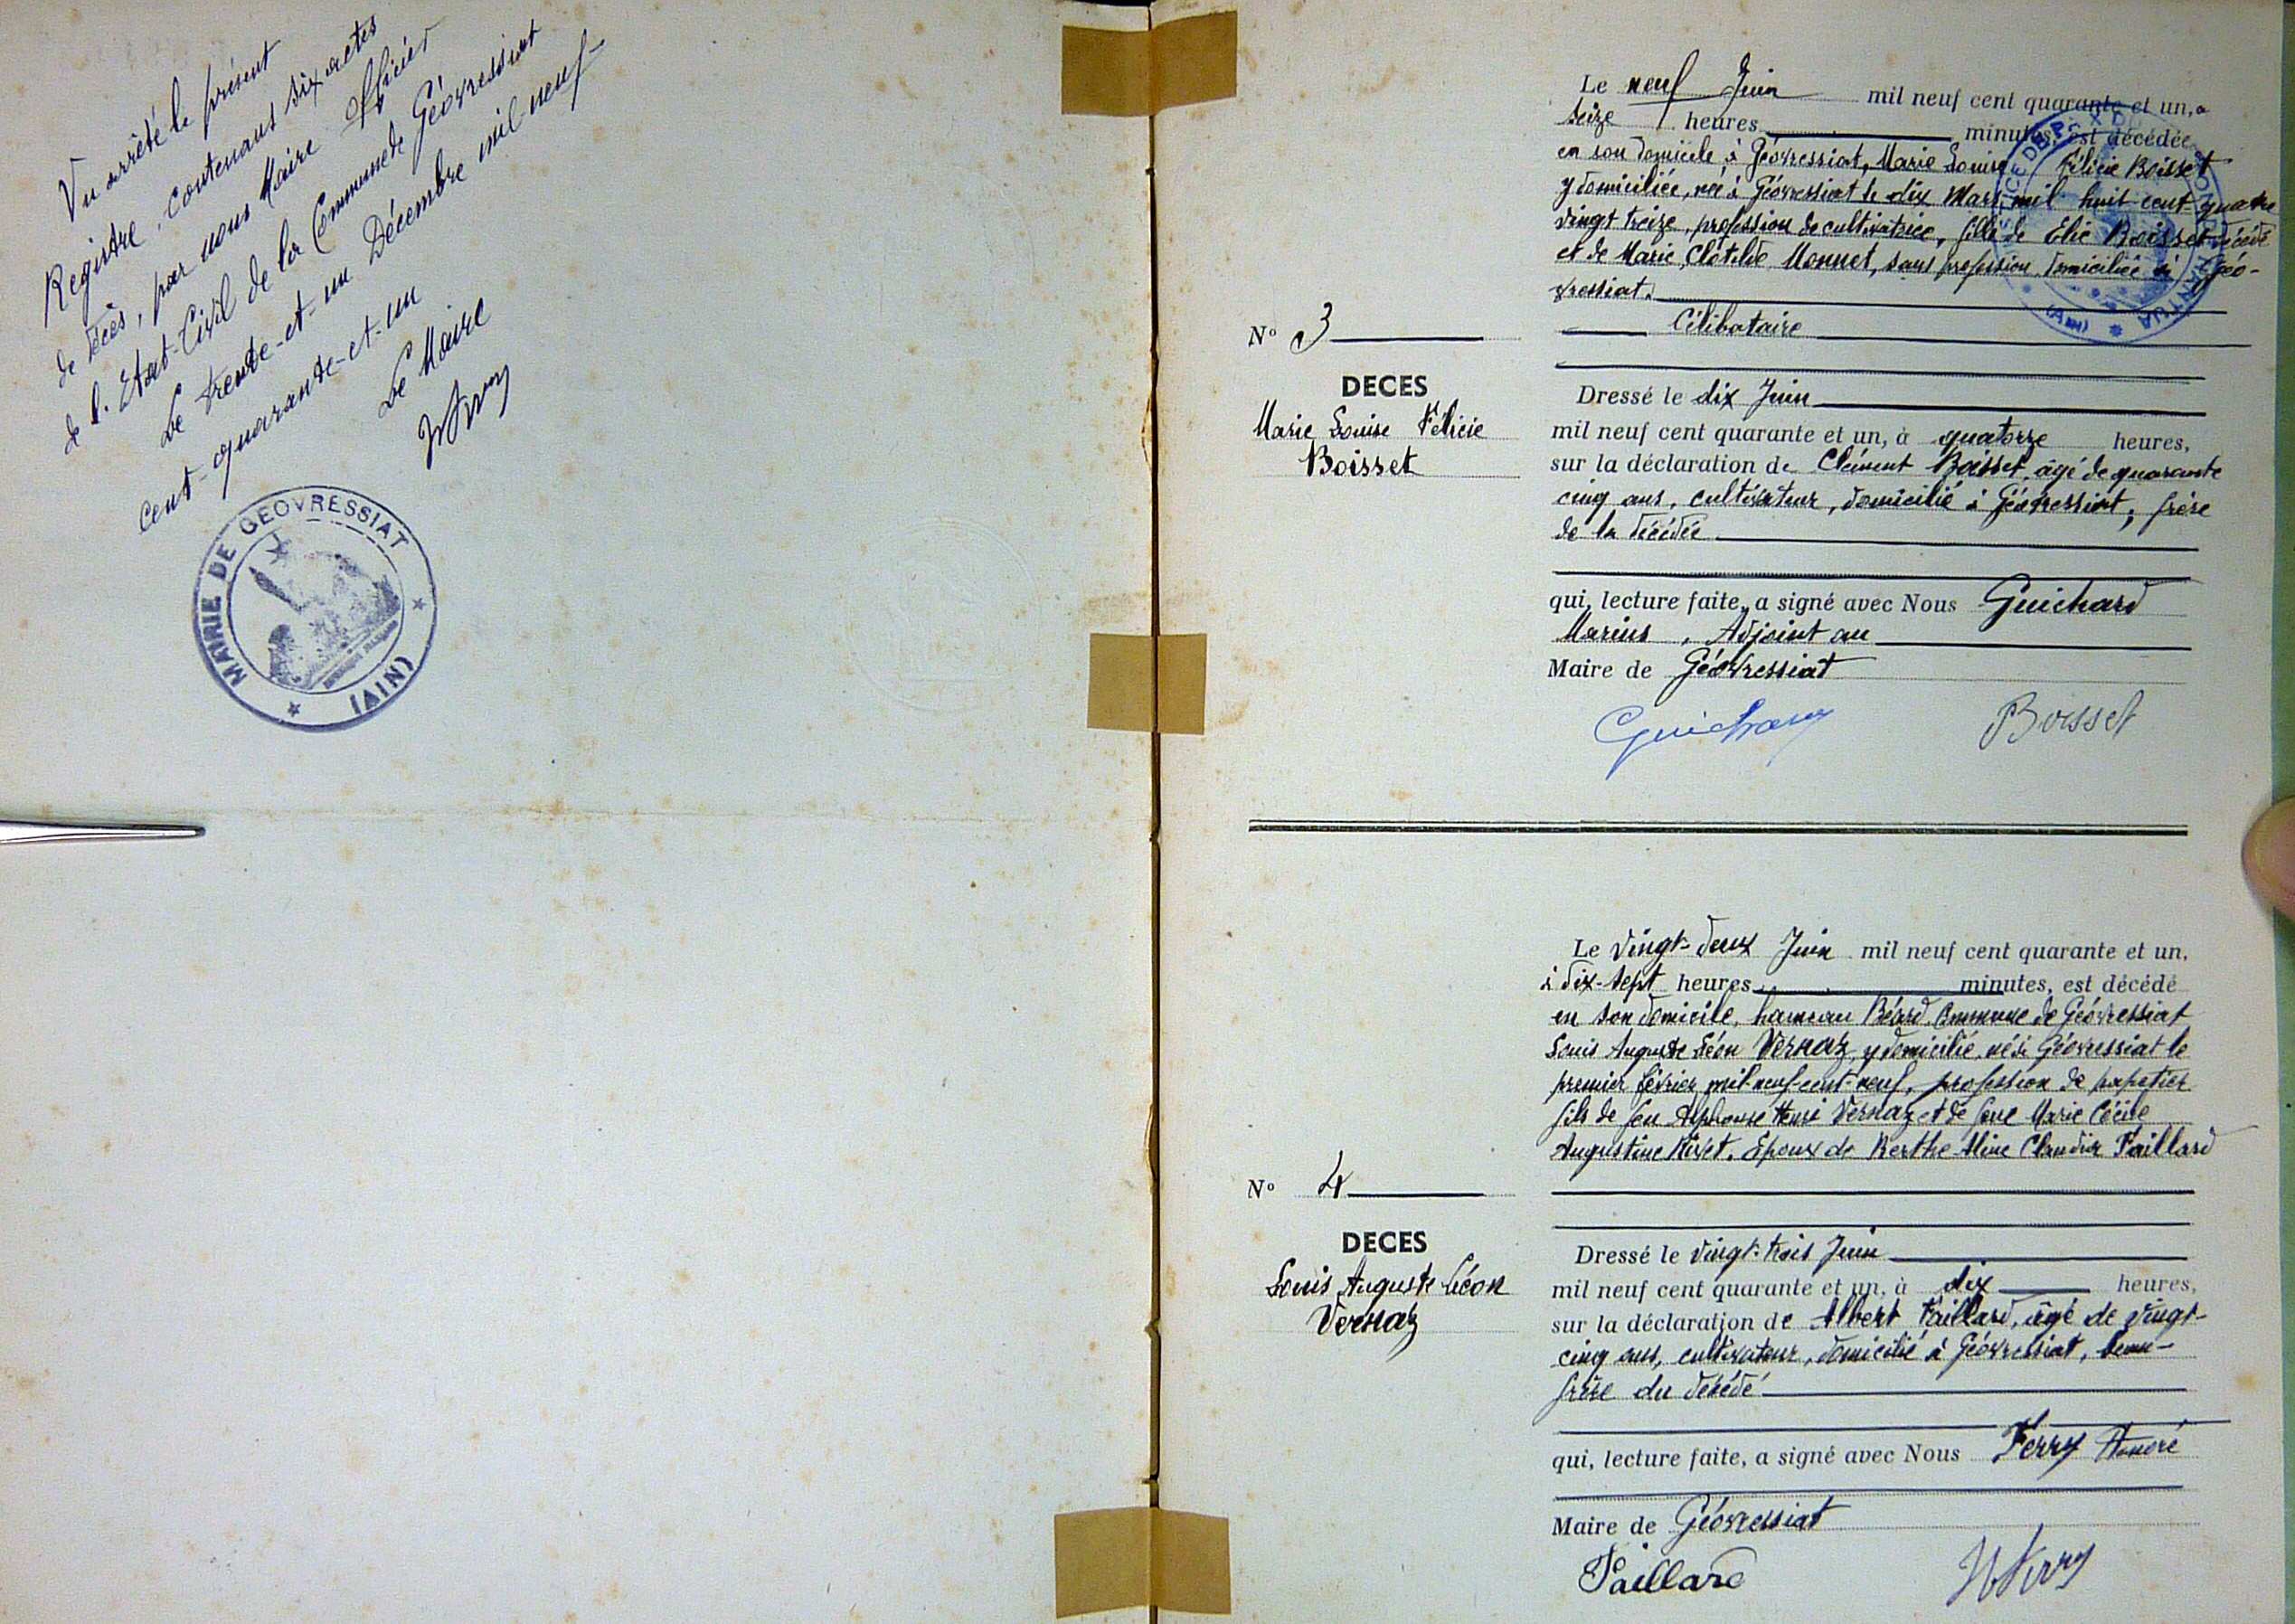 Vu arrêté le présent
Registre, contenant six actes
de décès, par nous Maire Officier
de l'Etat-Civil de la Commune de Géovressiat
Le trente-et-un Décembre mil-neuf-
cent-quarante-et-un
Le Maire
MAIRIE DE GEOVRESSIAT
(AIN)
Le neuf Juin mil neuf cent quarante et un, à
seize heures minutes, est décédée
en son domicile à Géovressiat, Marie Louise Félicie Boisset
y domiciliée, née à Géovressiat le dix Mars mil huit cent quatre
vingt treize, profession de cultivatrice, fille de Elie Boisset décédé
et de Marie Clotilde Monnet, sans profession domiciliée à Géo-
vressiat.
Célibataire
N° 3
DECES
Marie Louise Félicie
Boisset
Dressé le dix Juin
mil neuf cent quarante et un, à quatorze heures,
sur la déclaration de Clément Boisset, âgé de quarante
cinq ans, cultivateur, domicilié à Géovressiat, frère
de la décédée
qui, lecture faite, a signé avec Nous Guichard
Marius, Adjoint au
Maire de Géovressiat
Guichard Boisset
Le vingt-deux Juin mil neuf cent quarante et un,
à dix-sept heures minutes, est décédé
en son domicile, hameau Béard, Commune de Géovressiat
Louis Auguste Léon Vernaz, y domicilié, né à Géovressiat le
premier février mil-neuf-cent-neuf, profession de papetier
fils de feu Alphonse Henri Vernaz et de feue Marie Cécile
Augustine Nivet. Epoux de Berthe Aline Claudia Paillard
N° 4
DECES
Louis Auguste Léon
Vernaz
Dressé le vingt-trois Juin
mil neuf cent quarante et un, à dix heures,
sur la déclaration de Albert Paillard, âgé de vingt-
cinq ans, cultivateur, domicilié à Géovressiat, beau-
frère du décédé
qui, lecture faite, a signé avec Nous Ferry
Maire de Géovressiat
Paillard